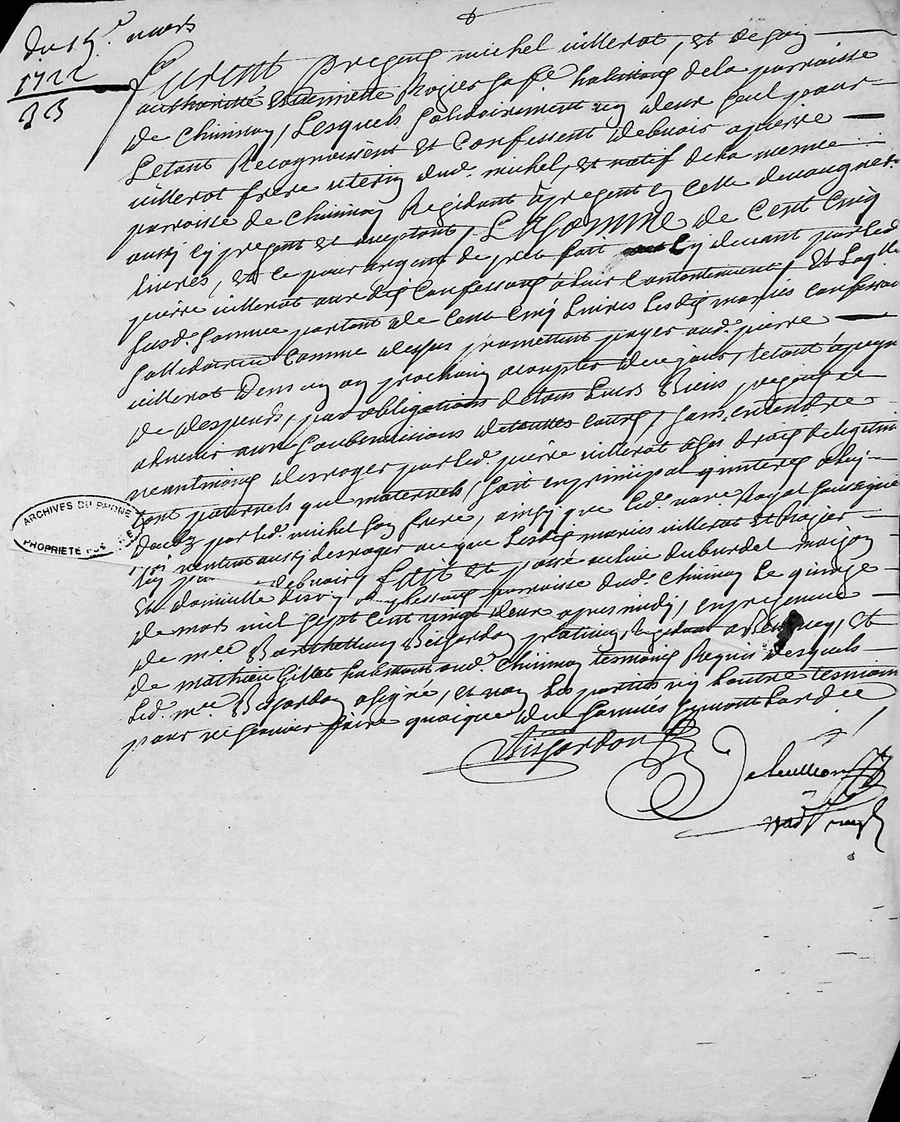 du 15e mars
1722
33
Furent presens michel villerot, et de son
authorité Rogier sa fe habitans de la parroisse
de Chininay, Lesquels solidairement un deux seul pour
Letout Recognoissent et Confessent debvoir a pierre
villerot frere uterin dud. michel, et natif de la mesme
parroisse de Chininay Residant apresent en
aussi cy present et aceptant, La Somme de Cent Cinq
Livres, et ce pour argent de prest fait cy devant par led
pierre villerot ausdis Confessans a leur Contentement, et Laq lle
susd. somme portant de Cent Cinq Livres Lesdis mariés confessans
sollidairement Comme dessus promettent payer aud. pierre
villerot dans un an prochain a compter de ce jour, letout a peyne
de despends, par obligations de tous Leurs Biens presens et
advenir aux soubmissions de touttes Cours, sans entendre
neantmoins desroger par led. pierre villerot a ses droits de legitime
tant paternels que maternels, soit en principal qu'interes a luy
deubz par led. michel son frere, ainsy que led.
n'entend aussi desroger ace que Lesdis mariés villerot et Rogier
luy debvoir, fait et passé au lieu du burdel maison
et domicille parroisse dud. Chininay Le quinze
de mars mil sept cent vingt deux apres midy, en presence
de mre Barthellemy Bissardon praticien, Residant a et
de mathieu Gillet habitant aud. Chininay tesmoins Requis desquels
led. mre Bissardon a signé, et non Les parties ny Lautre tesmoin
pour ne scavoir faire quoique de ce sommés
Bissardon